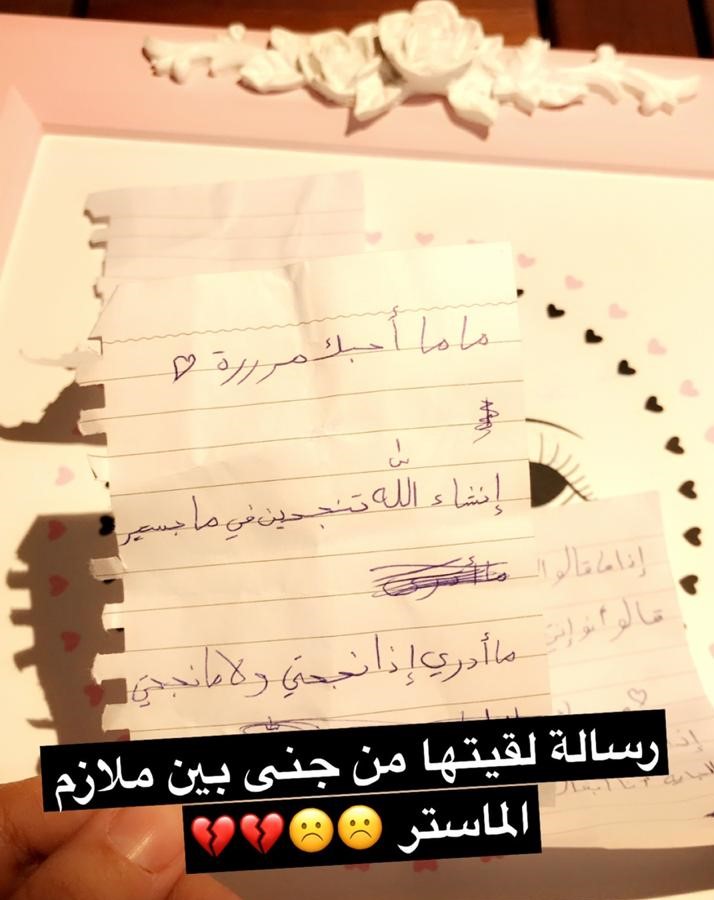 ماما أحبك مرررة ♡
إنشاء اللّه تنجحين في ماجستير
ما أدري إذا نجحتي ولا ما نجحتي
إذا ما قالوا
قالوا
إذ
رسالة لقيتها من جنى بين ملازم
الماستر ☹️☹️💔💔